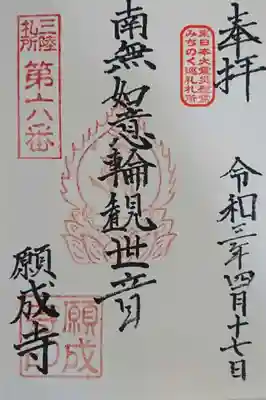 奉拝
東日本大震災慰霊
みちのく巡礼札所
令和三年四月十七日
南無如意輪観世音
三陸
札所
第十八番
願成寺
願成
寺印